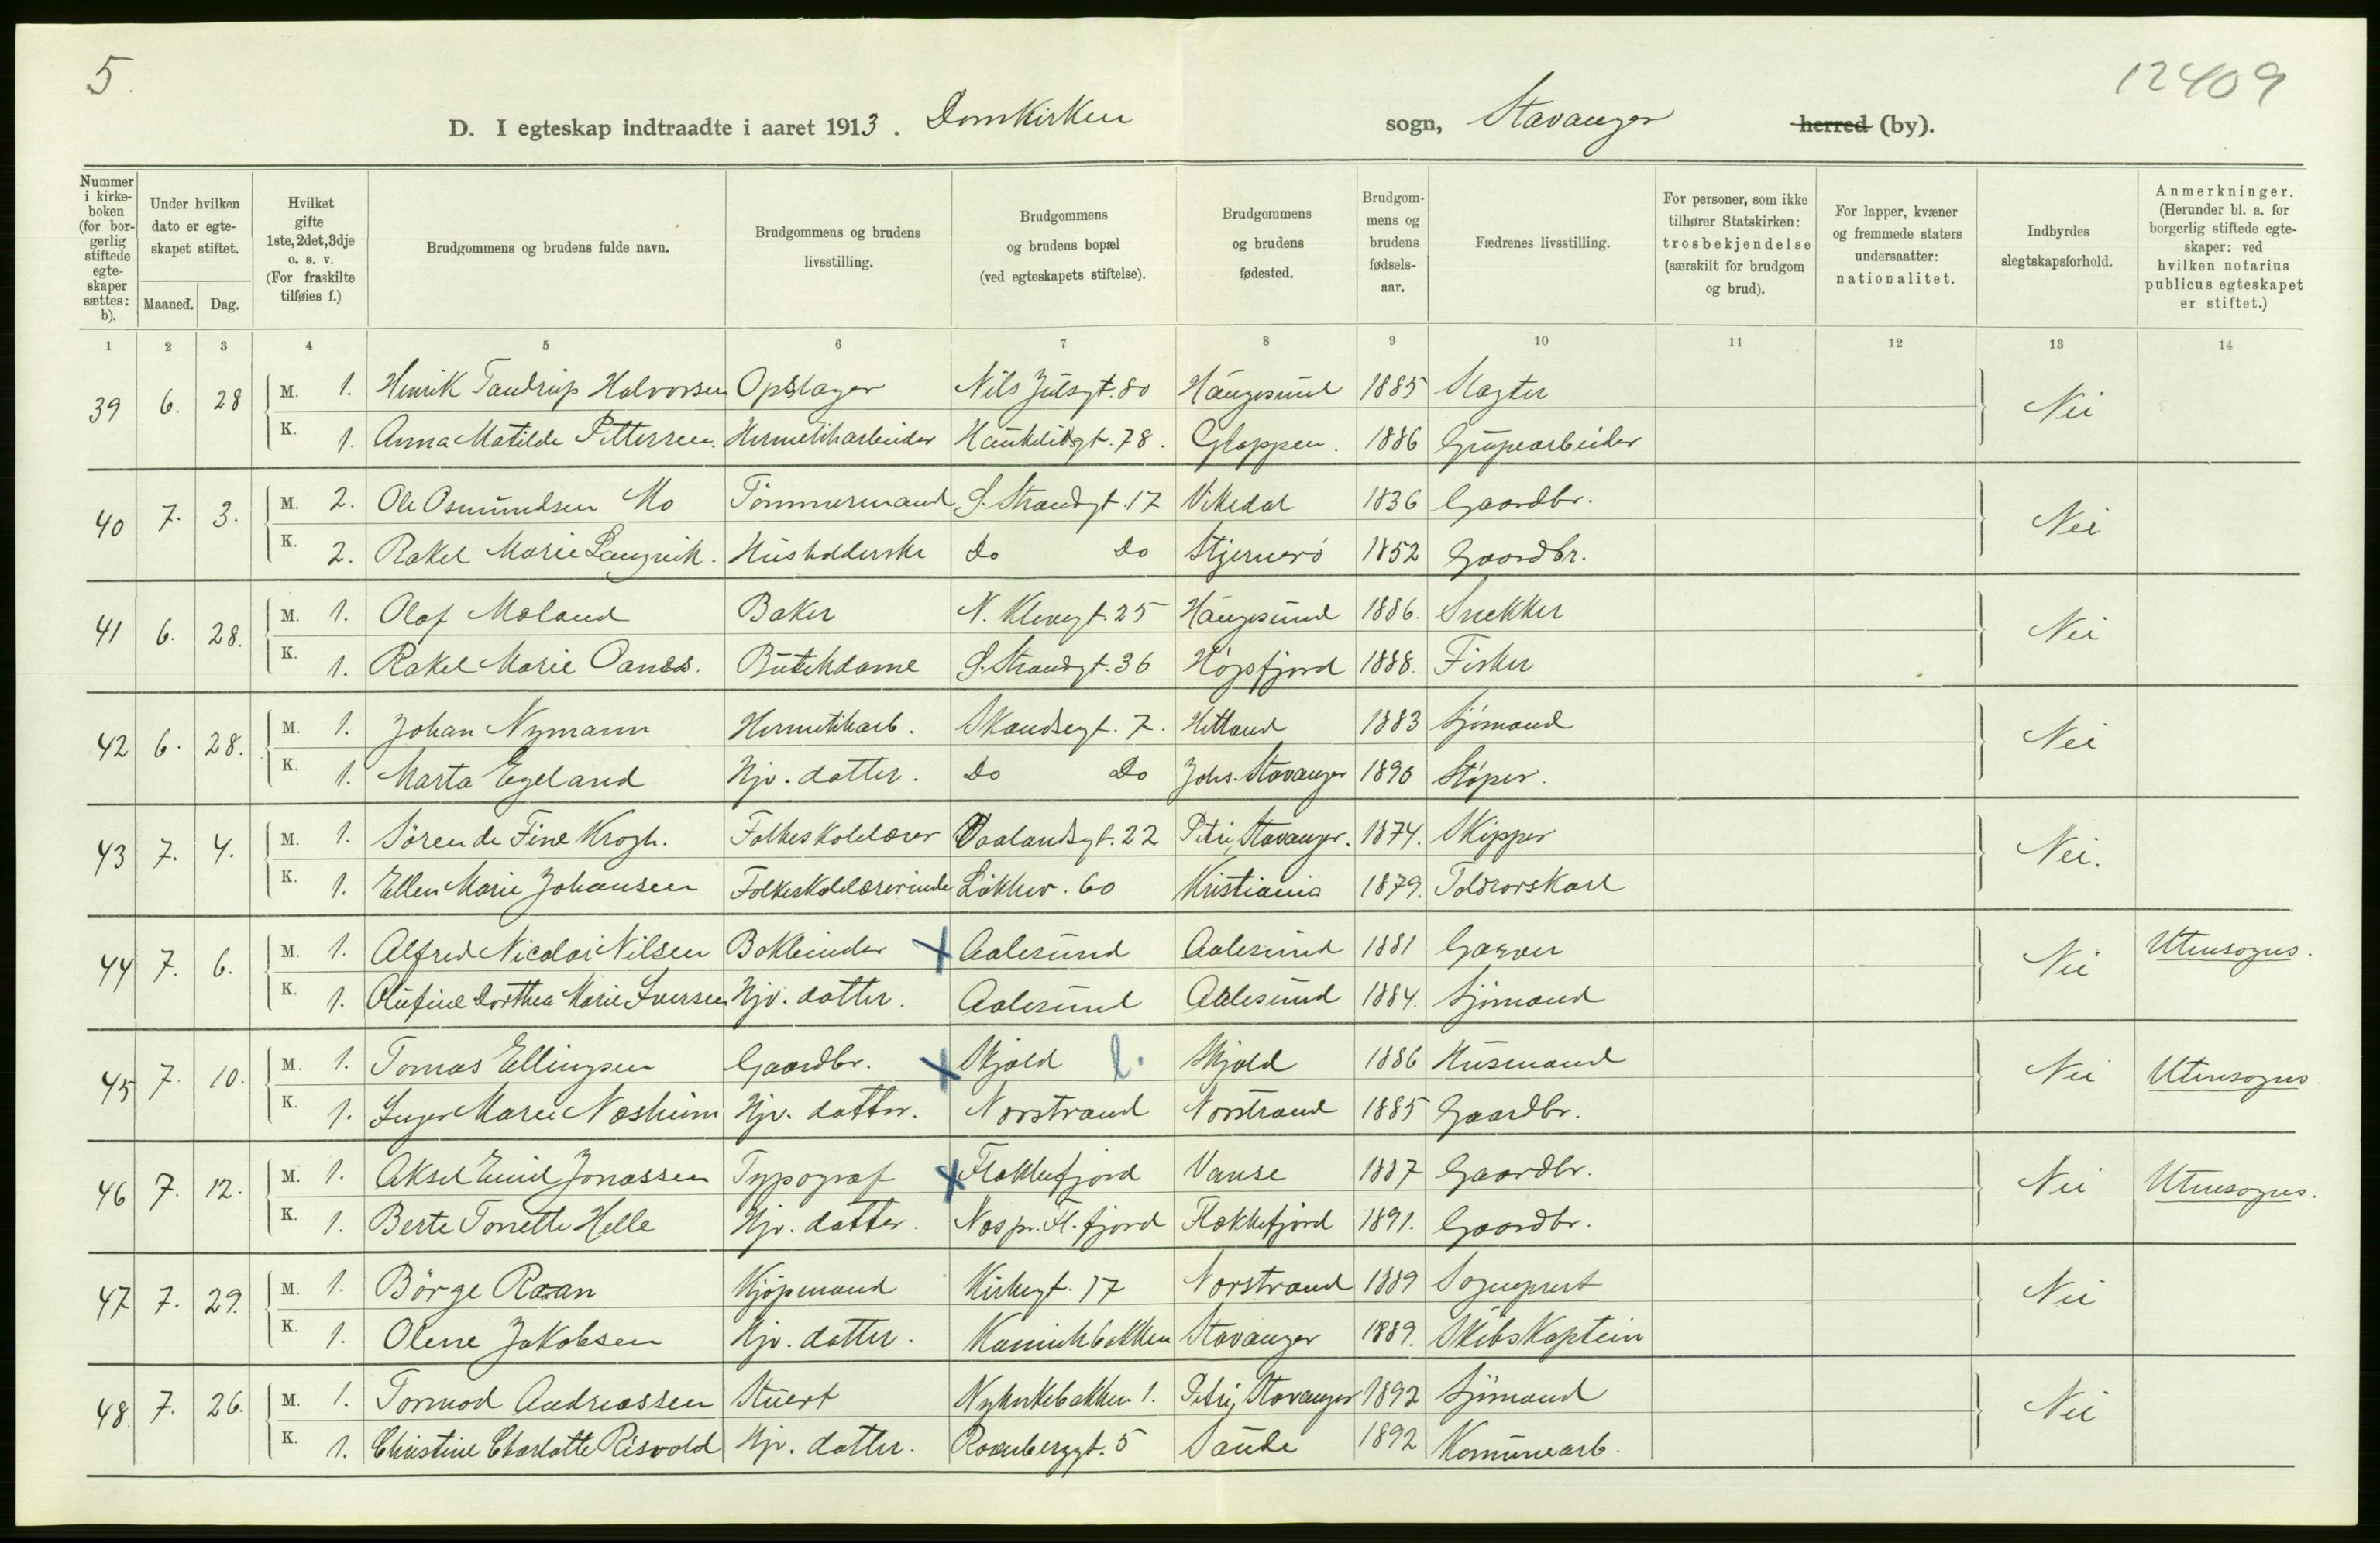 5.
12409
D. I egteskap indtraadte i aaret 1913. Domkirken sogn, Stavanger herred (by).
Nummer i kirkeboken (for borgerlig stiftede egteskaper sættes: b).
Under hvilken dato er egteskapet stiftet.
Maaned. Dag.
Hvilket gifte 1ste, 2det, 3dje o. s. v. (For fraskilte tilføies f.)
Brudgommens og brudens fulde navn.
Brudgommens og brudens livsstilling.
Brudgommens og brudens bopæl (ved egteskapets stiftelse).
Brudgommens og brudens fødested.
Brudgommens og brudens fødselsaar.
Fædrenes livsstilling.
For personer, som ikke tilhører Statskirken: trosbekjendelse (særskilt for brudgom og brud).
For lapper, kvæner og fremmede staters undersaatter: nationalitet.
Indbyrdes slegtskapsforhold.
Anmerkninger. (Herunder bl. a. for borgerlig stiftede egteskaper: ved hvilken notarius publicus egteskapet er stiftet.)
1 2 3 4 5 6 7 8 9 10 11 12 13 14
39 6. 28 M. 1. Henrik Tandrup Halvorsen Opslager Nils Julsgt. 80 Haugesund 1885 Slagter Nei
K. 1. Anna Matilde Pettersen. Hermetikarbeider Haukeligt. 78. Gloppen. 1886 Grupearbeider
40 7. 3. M. 2. Ole Osmundsen Mo Tömmermand S. Strandgt. 17 Vikedal 1836 Gaardbr. Nei
K. 2. Rakel Marie Langvik. Husholderske Do Do Stjernerö 1852 Gaardbr.
41 6. 28. M. 1. Olaf Moland Baker N. Klevegt. 25 Haugesund 1886. Snekker Nei
K. 1. Rakel Marie Oanes. Butikdame S. Strandgt. 36 Högsfjord 1888. Fisker
42 6. 28. M. 1. Johan Nymann Hermetikarb. Skandsegt. 7. Hetland 1883 Sjömand Nei
K. 1. Marta Egeland Hjv. datter. Do Do Johs. Stavanger 1890 Stöper.
43 7. 4. M. 1. Sören de Fine Krogh. Folkeskolelærer Vaalandsgt. 22 Petri, Stavanger. 1874. Skipper Nei.
K. 1. Ellen Marie Johansen Folkeskolelærerinde Lökkev. 60 Kristiania 1879. Toldrorskarl
44 7. 6. M. 1. Alfred Nicolai Nilsen Bokbinder Aalesund Aalesund 1881 Garver Nei Utensogns.
K. 1. Olufine Dorthea Marie Iversen Hjv. datter. Aalesund Aalesund 1884. Sjömand
45 7. 10. M. 1. Tomas Ellingsen Gaardbr. Skjold Skjold 1886 Husmand Nei Utensogns
K. 1. Inger Marie Næsheim Hjv. datter. Norstrand Norstrand 1885 Gaardbr.
46 7. 12. M. 1. Aksel Emil Jonassen Typograf Flekkefjord Vanse 1887 Gaardbr. Nei Utensogns.
K. 1. Berte Tonette Helle Hjv. datter. Næs pr. Fl. fjord Flekkefjord 1891. Gaardbr.
47 7. 29. M. 1. Börge Raan Kjöpmand Kirkegt. 17 Norstrand 1889 Sogneprest Nei
K. 1. Olene Jakobsen Hjv. datter. Kannikbakken Stavanger 1889. Skibskaptein
48. 7. 26. M. 1. Tormod Andreassen Stuert Nykirkebakken 1. Petri, Stavanger 1892 Sjömand Nei
K. 1. Christine Charlotte Risvold Hjv. datter. Rosenberggt. 5 Saude 1892 Komunearb.